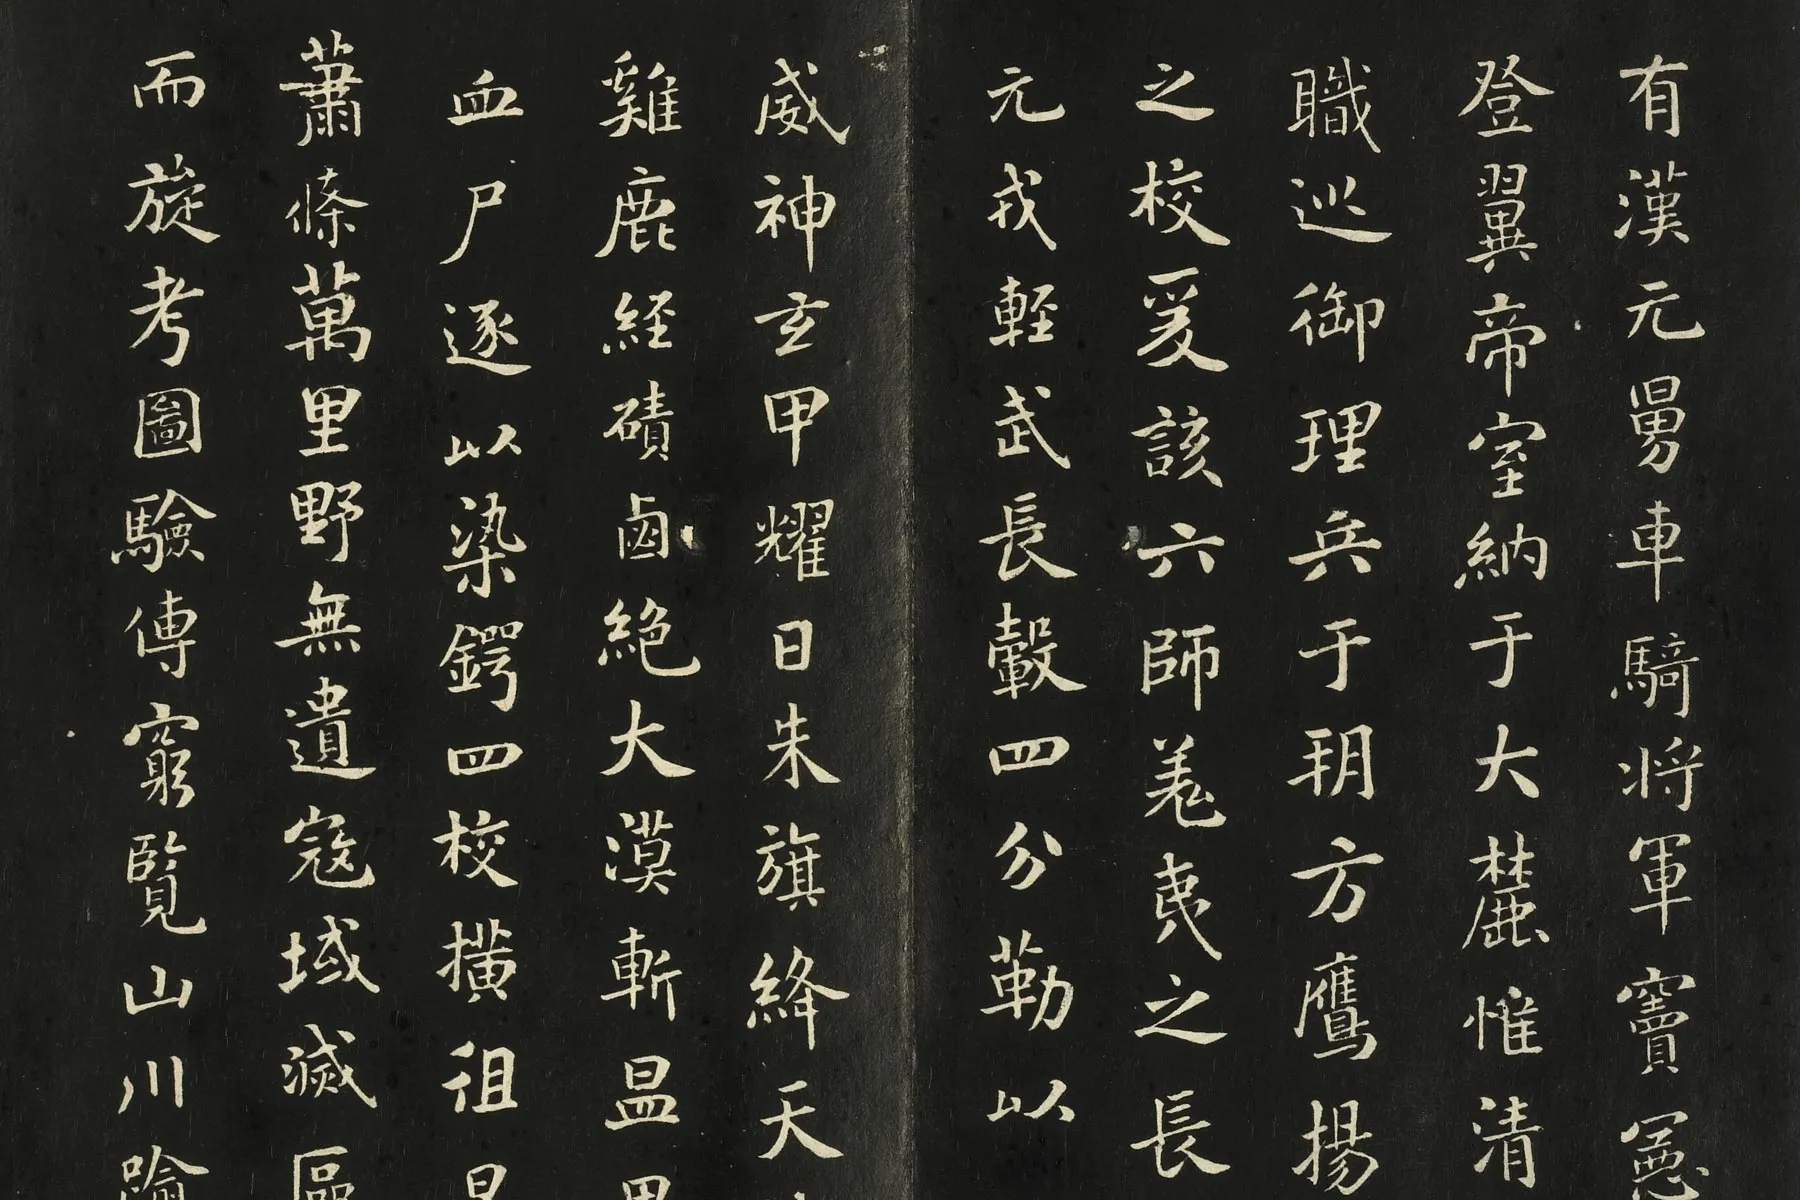 有漢元舅車騎将軍竇憲
登翼帝室納于大麓惟清
職巡御理兵于朔方鷹揚
之校爰該六師羌夷之長
元戎輕武長轂四分勒以
威神玄甲耀日朱旗絳天
雞鹿経磧鹵絶大漠斬昷
血尸逐以染鍔四校撗徂
蕭條萬里野無遺寇域滅區
而旋考圖驗傳窮覽山川踰